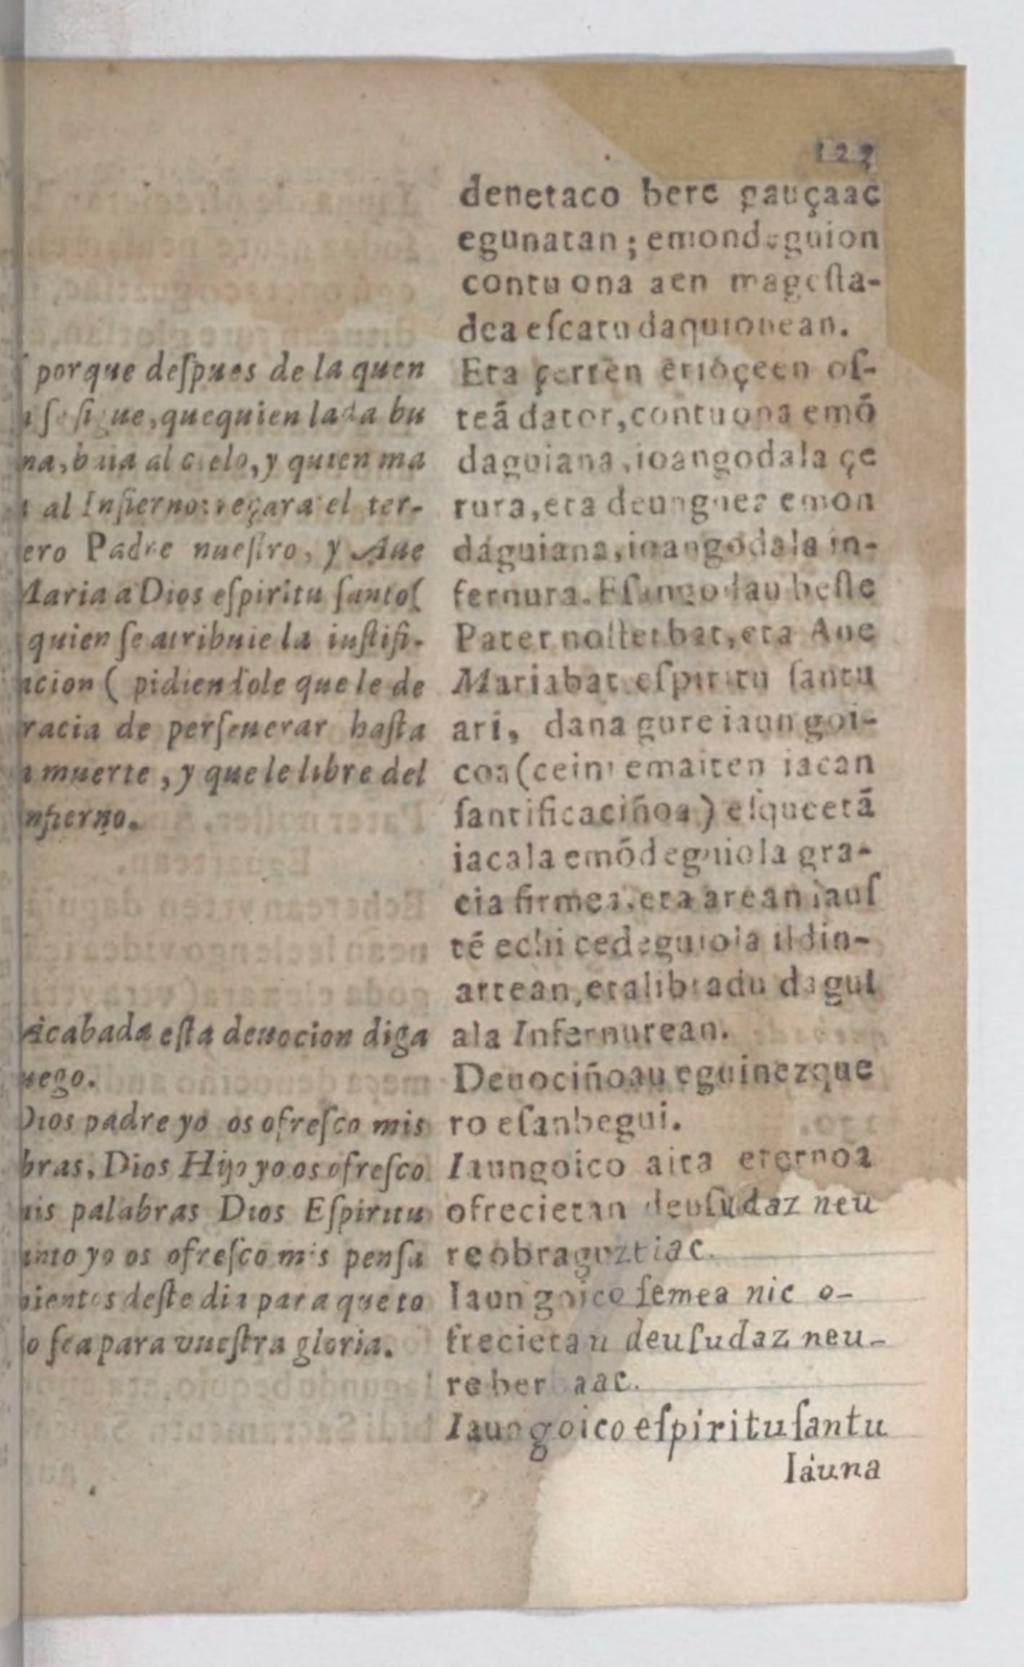 127
porque deſpues de la quen
ſe ſigue, que quien la da bu
na, baia al cielo, y quien ma
al Infierno: reçara el ter-
ero Padre nueſtro, y Aue
Maria a Dios eſpiritu ſanto (
quien ſe atribuie la iuſtifi-
acion ( pidiendole que le de
racia de perſeuerar haſta
a muerte, y que le libre del
nfierno.
Acabada eſta deuocion diga
uego.
Dios padre yo os ofreſco mis
bras, Dios Hijo yo os ofreſco
mis palabras Dios Eſpiritu
anto yo os ofreſco mis penſa
mientos deſte dia para que to
do ſea para vueſtra gloria.
denetaco bere gauçaac
egunatan; emondeguion
contu ona aen mageſta-
dea eſcatu daquionean.
Eta çerren erioçeen oſ-
teā dator, contu ona emō
daguiana, ioangodala çe
rura, eta deunguez emon
daguiana, ioangodala in-
fernura. Eſango dau beſte
Pater noſter bat, eta Aue
Mariabat eſpiritu ſantu
ari, dana gure iaun goi-
coa (ceini emaiten iacan
ſantificaciñoa) eſquetā
iacala emōdeguiola gra-
cia firmea, eta arean iauſ
tē echi cedeguiola ildin-
artean, eta libradu dagui
ala Infernurean.
Deuociñoau eguinezque
ro eſanbegui.
Iaungoico aita eternoa
ofrecietan deuſudaz neu
re obraguztiac.
Iaungoico ſemea nic o-
frecietan deuſudaz neu-
re berbaac.
Iaungoico eſpiritu ſantu
Iáuna